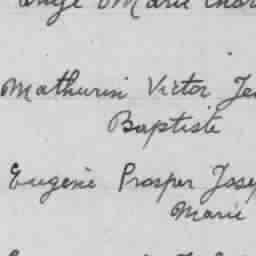 Marie
Mathurin Victor Je
Baptiste
Eugène Prosper Jose
Marie